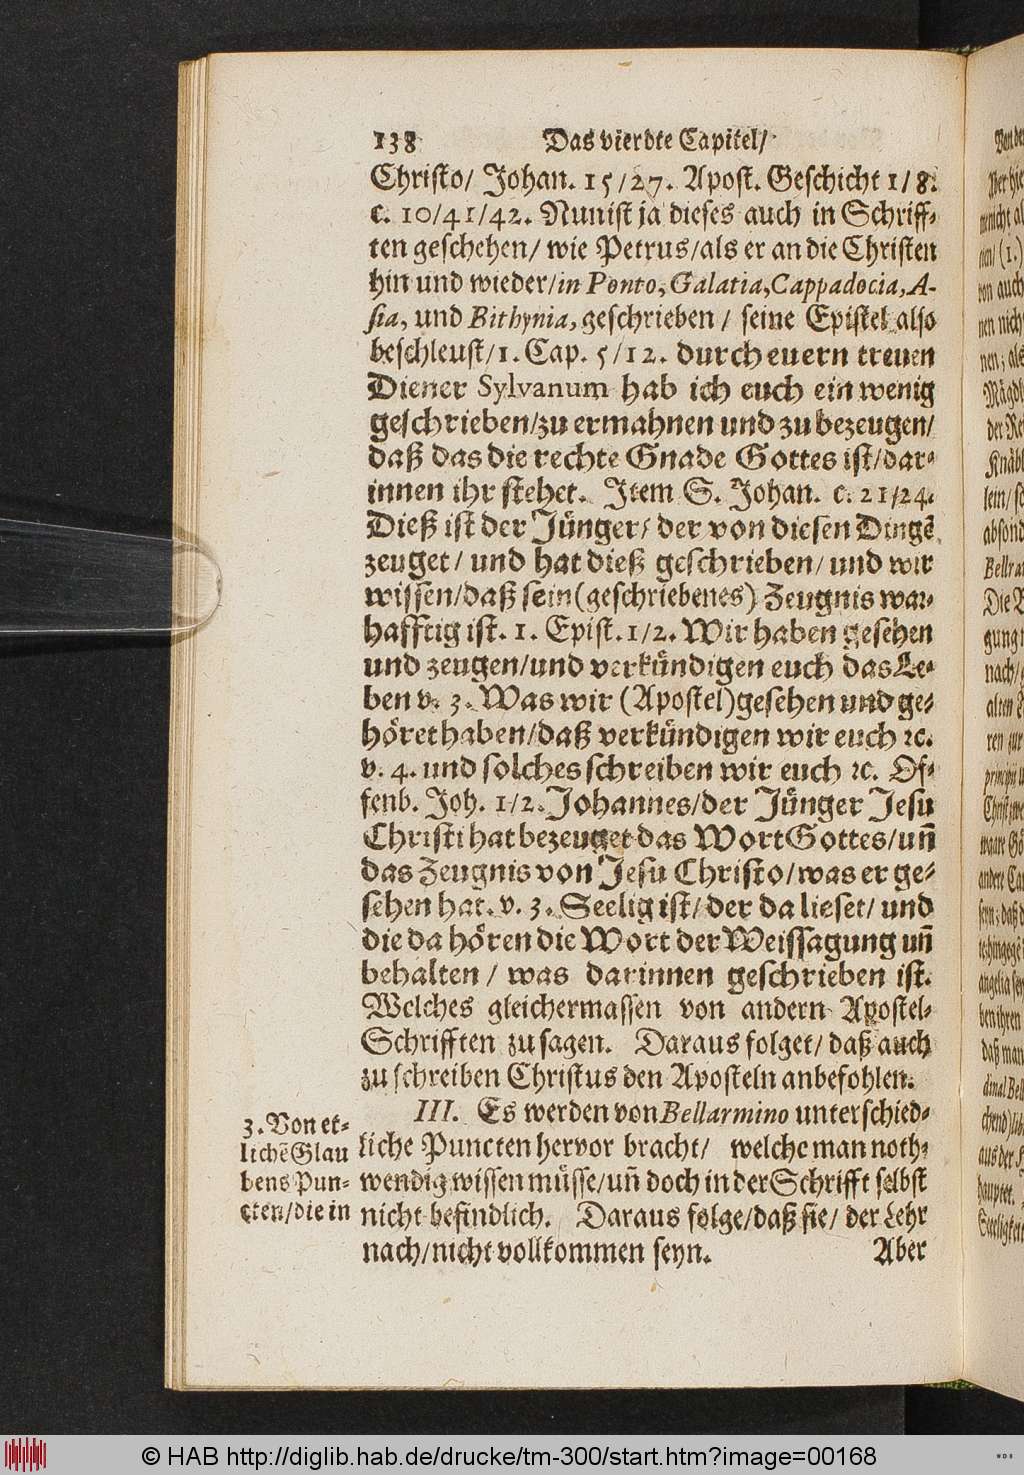 138 Das vierdte Capitel/
Christo/ Johan. 15/27. Apost. Geschicht 1/8.
c. 10/41/42. Nun ist ja dieses auch in Schriff-
ten geschehen/ wie Petrus/als er an die Christen
hin und wieder/in Ponto, Galatia, Cappadocia, A-
sia, und Bithynia, geschrieben / seine Epistel also
beschleust/1. Cap. 5/12. durch euern treuen
Diener Sylvanum hab ich euch ein wenig
geschrieben/zu ermahnen und zu bezeugen/
daß das die rechte Gnade Gottes ist/dar-
innen ihr stehet. Item S. Johan. c. 21/24.
Dieß ist der Jünger/ der von diesen Dingẽ
zeuget/ und hat dieß geschrieben/ und wir
wissen/daß sein (geschriebenes) Zeugnis war-
hafftig ist. 1. Epist. 1/2. Wir haben gesehen
und zeugen/und verkündigen euch das Le-
ben v. 3. Was wir (Apostel) gesehen und ge-
höret haben/daß verkündigen wir euch ꝛc.
v. 4. und solches schreiben wir euch ꝛc. Of-
fenb. Joh. 1/2. Johannes/der Jünger Jesu
Christi hat bezeuget das Wort Gottes/uñ
das Zeugnis von Jesu Christo/was er ge-
sehen hat. v. 3. Seelig ist/ der da lieset/ und
die da hören die Wort der Weissagung uñ
behalten / was darinnen geschrieben ist.
Welches gleichermassen von andern Apostel-
Schrifften zu sagen. Daraus folget/ daß auch
zu schreiben Christus den Aposteln anbefohlen.
III. Es werden von Bellarmino unterschied-
liche Puncten hervor bracht/ welche man noth-
wendig wissen müsse/uñ doch in der Schrifft selbst
nicht befindlich. Daraus folge/daß sie/ der Lehr
nach/nicht vollkommen seyn. Aber
3. Von et-
lichẽ Glau
bens Pun-
cten/die in
© HAB http://diglib.hab.de/drucke/tm-300/start.htm?image=00168